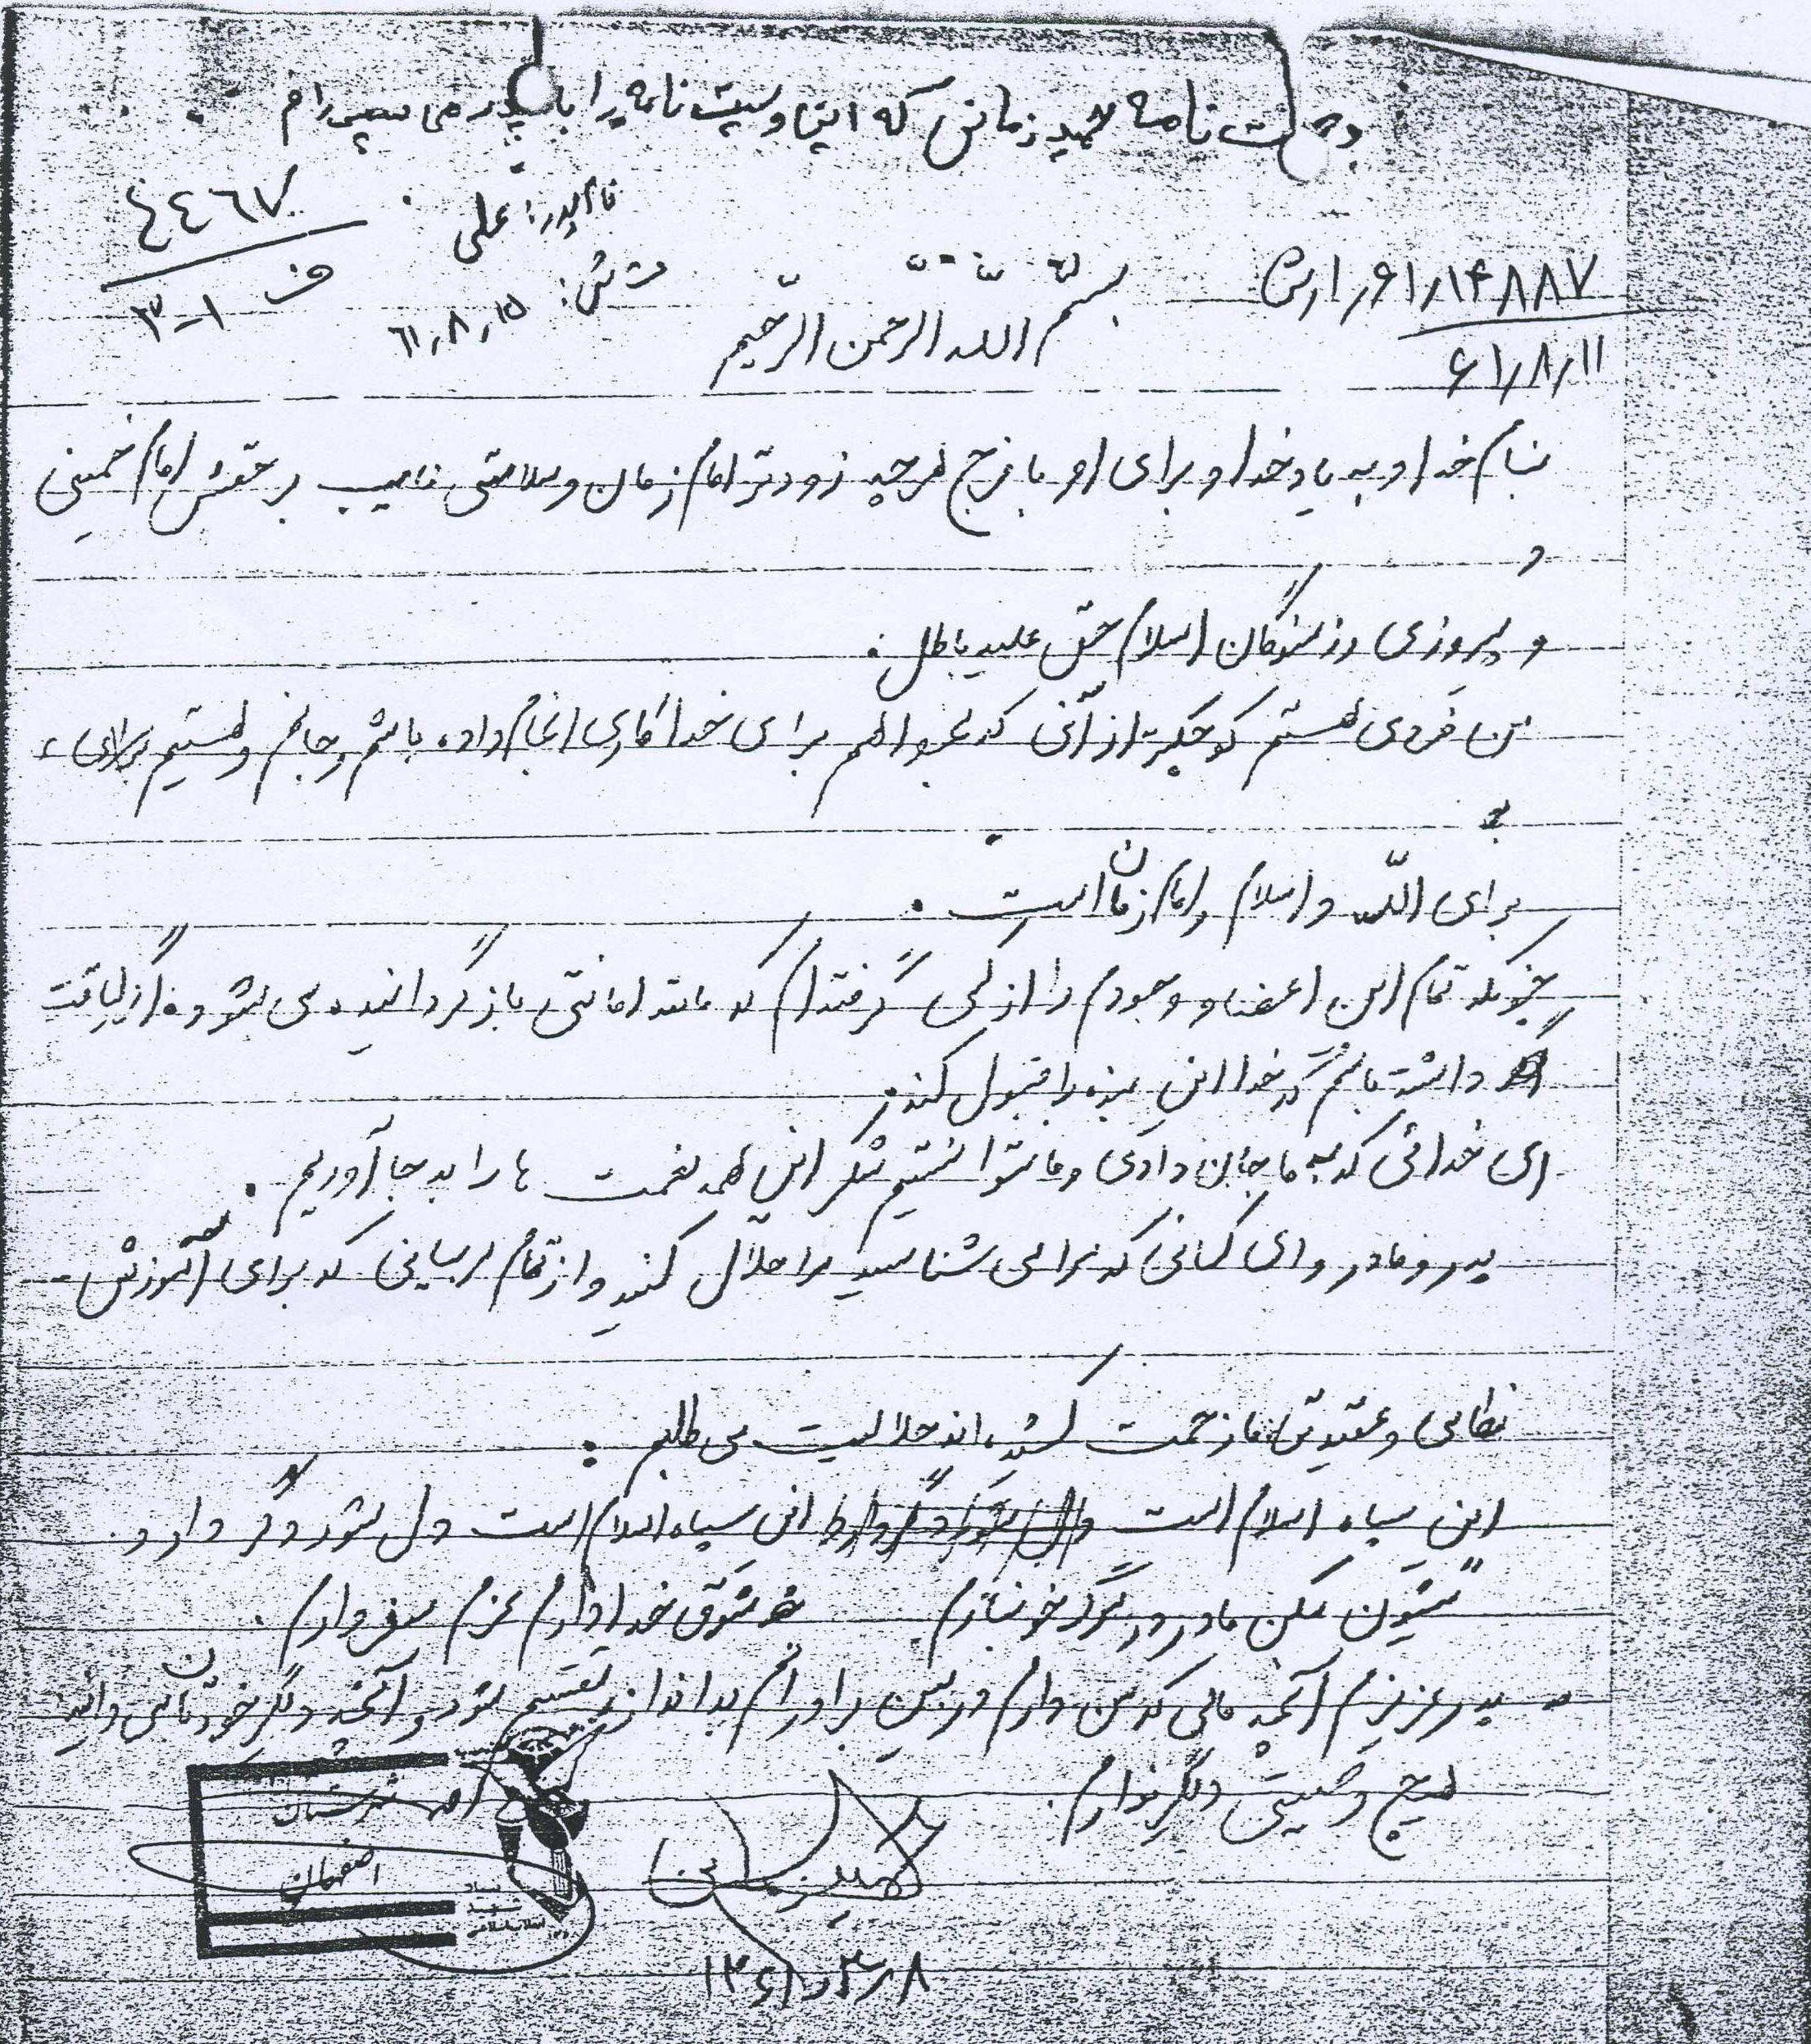 وصیت نامه حمید زمانی که این وصیت نامه را با پدر می سپرام
نام پدر: علی
٤٤٦٧
ف ۱-۳
ش ش: ٦١٫٨٫١٥
۶۱٫۱۴۸۸۷
۶۱٫۸٫۱۱
بسم الله الرحمن الرحیم
بنام خدا و به یاد خدا و برای او با فرج هر چه زودتر امام زمان و سلامتی نایب بر حقش امام خمینی
و
و پیروزی رزمندگان اسلام حق علیه باطل.
من فردی هستم کوچکتر از آنی که بخواهم برای خدا کاری انجام داده باشم و جانم و هستیم برای
برای الله و اسلام و امام زمان است.
چونکه تمام این اعضاء و وجودم را از کسی گرفته ام که مانند امانتی باز گردانیده می شود و اگر لیاقت
داشته باشم که خدا این بنده را قبول کند.
ای خدائی که به ما جان دادی و ما نتوانستیم شکر این همه نعمت ها را به جا آوریم.
پدر و مادر و ای کسانی که مرا می شناسید مرا حلال کنید و از تمام مربیانی که برای آموزش
نظامی و عقیدتی ما زحمت کشیده اند حلالیت می طلبم.
این سپاه اسلام است این سپاه اسلام است دل شور دگر دارد.
شیون مکن مادر در مرگ خونبارم شوق خدا دارم عزم سفر دارم.
پدر عزیزم آنچه مالی که من دارم در بین برادرانم به اندازه تقسیم شود و آنچه دیگر خودتان می دانید
هیچ وصیتی دیگر ندارم.
شهرستان
اصفهان
بنیاد
شهید
انقلاب اسلامی
۱۳۶۱٫۳٫۸